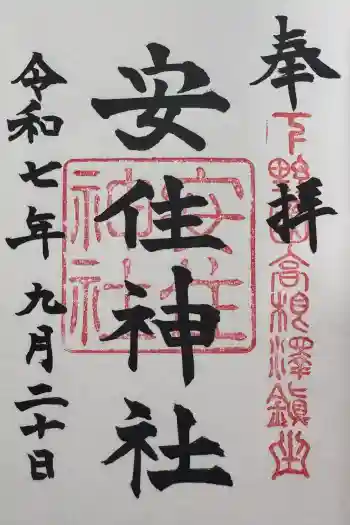 奉拝
下野國高根澤鎮坐
安住神社
安住神社
令和七年九月二十日